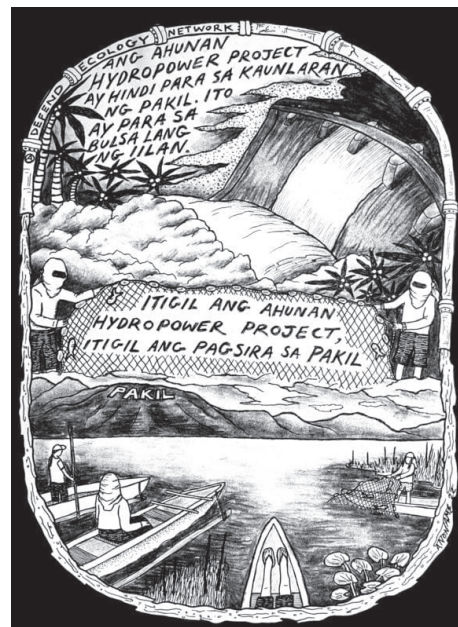 DEFEND ECOLOGY NETWORK
ANG AHUNAN
HYDROPOWER PROJECT
AY HINDI PARA SA KAUNLARAN
NG PAKIL. ITO
AY PARA SA
BULSA LANG
NG IILAN.
ITIGIL ANG AHUNAN
HYDROPOWER PROJECT,
ITIGIL ANG PAGSIRA SA PAKIL
PAKIL